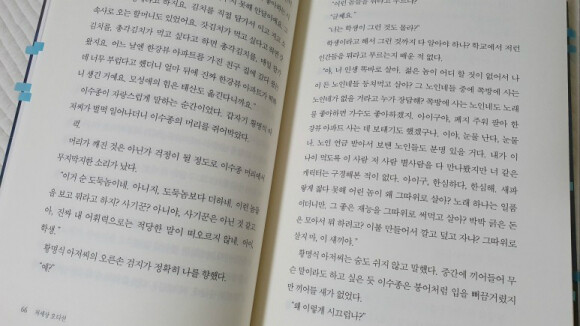 김치를
김치를 직접 담가서 이고 지고
속사로 오는 할머니도 있었어요. 갓김치가 먹고 싶다고 하면
김치를, 총각김치가 먹고 싶다고 하면 총각김치를,
왔지요. 어느 날엔 한강뷰 아파트를 가진 친구 집에 갔다
데 너무 부럽다고 했더니 얼마 뒤에 진짜 한강뷰 아파트가
니 생긴 거예요. 모성애의 힘은 태산도 옮긴다니까요."
이수종이 자랑스럽게 말하는 순간이었다. 갑자기 황명식 아
저씨가 벌떡 일어나더니 이수종의 머리를 쥐어박았다.
퍽.
머리가 깨진 것은 아닌가 걱정이 될 정도로 이수종 머리에서
무지막지한 소리가 났다.
"이거 순 도둑놈이네. 아니지, 도둑놈보다 더하네. 이런 놈들
을 보고 뭐라고 하지? 사기꾼? 아니야, 사기꾼은 아닌 것 같고
아, 진짜 내 어휘력으로는 적당한 말이 떠오르지 않네. 야,
학생."
황명식 아저씨의 오른손 검지가 정확히 나를 향했다.
"예?"
66
"이런 놈들을 뭐라고 부르지?"
"글쎄요."
"너는 학생이 그런 것도 몰라?"
학생이라고 해서 그런 것까지 다 알아야 하나? 학교에서 저런
인간들을 뭐라고 부르는지 배운 적 없다.
"야, 너 인생 똑바로 살아. 젊은 놈이 어디 할 것이 없어서 나
이 든 노인네들 등쳐먹고 살아? 그 노인네들 중에 쪽방에 사는
노인네가 없을 거라고 누가 장담해? 쪽방에 사는 노인네도 노래
를 좋아하면 가수도 좋아하겠지. 아이구야, 폐지 주워 팔아 한
강뷰 아파트 사는 데 보태기도 했겠구나. 이야, 눈물 난다, 눈물
나. 노인 연금 받아서 보탠 노인들도 분명 있을 거다. 내가 이
나이 먹도록 이 사람 저 사람 별사람을 다 만나봤지만 너 같은
캐릭터는 구경해본 적이 없다. 아이구, 한심하다, 한심해. 새파
랗게 젊다 못해 어린 놈이 왜 그따위로 살아? 노래 하나는 일품
이더니만, 그 좋은 재능을 그따위로 써먹고 살아? 박박 긁은 돈
은 모아서 뭐 하려고? 이불 만들어서 깔고 덮고 자냐? 그따위로
살지 마, 이 새끼야."
황명식 아저씨는 숨도 쉬지 않고 말했다. 중간에 끼어들어 무
슨 말이라도 하고 싶은 듯 이수종은 붕어처럼 입을 뻐끔거렸지
만 끼어들 새가 없었다.
"왜 이렇게 시끄럽니?"